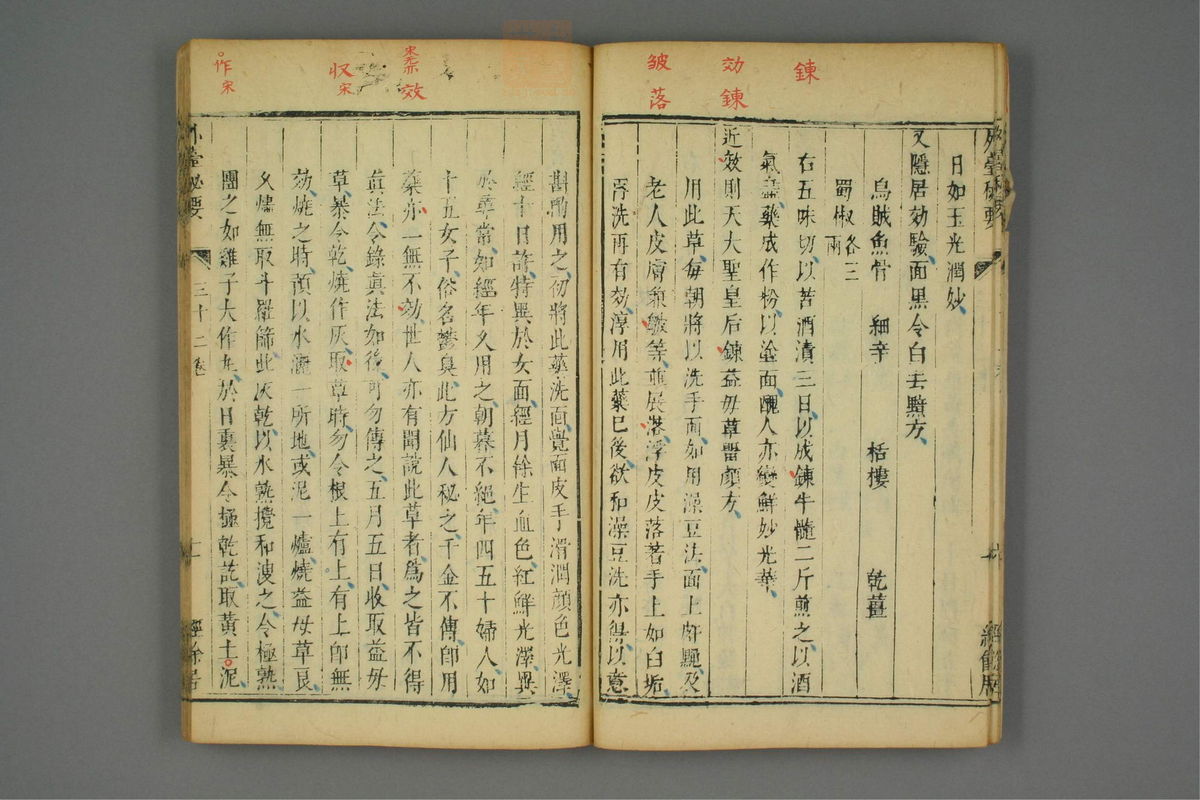 錬
効
錬
皺
落
日如玉光潤妙
又隱居効驗面黒令白去黯方
烏賊魚骨 細辛 栝樓 乾薑
蜀椒各三兩
右五味切以苦酒漬三日以成錬牛髓二斤煎之以酒
氣盡藥成作粉以塗面醜人亦變鮮妙光華
近效則天大聖皇后錬益母草留顏方
用此草每朝將以洗手面如用澡豆法面上皯䵳及
老人皮膚兼皺等並展落浮皮皮落著手上如白垢
再洗再有効淳用此藥已後欲和澡豆洗亦得以意
外臺秘要
經餘居
宋
效
収宋
作宋
斟酌用之初將此藥洗面覺面皮手滑潤顏色光澤
經十日許特異於女面經月餘生血色紅鮮光澤異
於尋常如經年久用之朝暮不絕年四五十婦人如
十五女子俗名鬱臭此方仙人秘之千金不傳即用
藥亦一無不効世人亦有聞說此草者為之皆不得
真法今錄真法如後可勿傳之五月五日收取益母
草暴令乾燒作灰取草時勿令根上有土有土即無
効燒之時預以水灑一所地或泥一爐燒益母草良
久燼無取斗羅篩此灰乾以水熟攪和溲之令極熟
團之如雞子大作丸於日裏暴令極乾訖取黄土泥
外臺秘要
三十二卷
經餘居